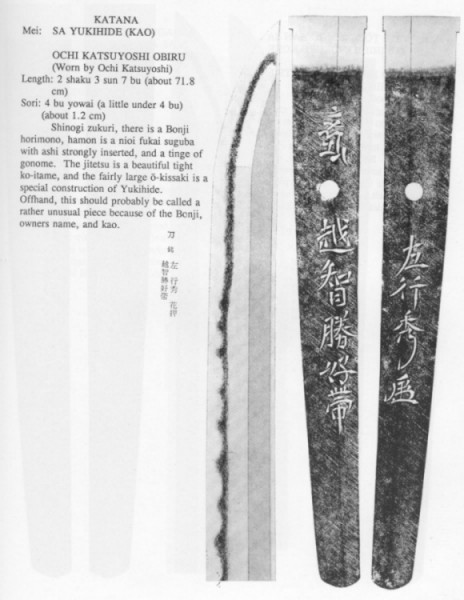 KATANA
Mei: SA YUKIHIDE (KAO)
OCHI KATSUYOSHI OBIRU
(Worn by Ochi Katsuyoshi)
Length: 2 shaku 3 sun 7 bu (about 71.8
cm)
Sori: 4 bu yowai (a little under 4 bu)
(about 1.2 cm)
Shinogi zukuri, there is a Bonji
horimono, hamon is a nioi fukai suguba
with ashi strongly inserted, and a tinge of
gonome. The jitetsu is a beautiful tight
ko-itame, and the fairly large ō-kissaki is a
special construction of Yukihide.
Offhand, this should probably be called a
rather unusual piece because of the Bonji,
owners name, and kao.
刀 銘 左 行秀 花押
越智勝好帯
越智勝好帯
左行秀